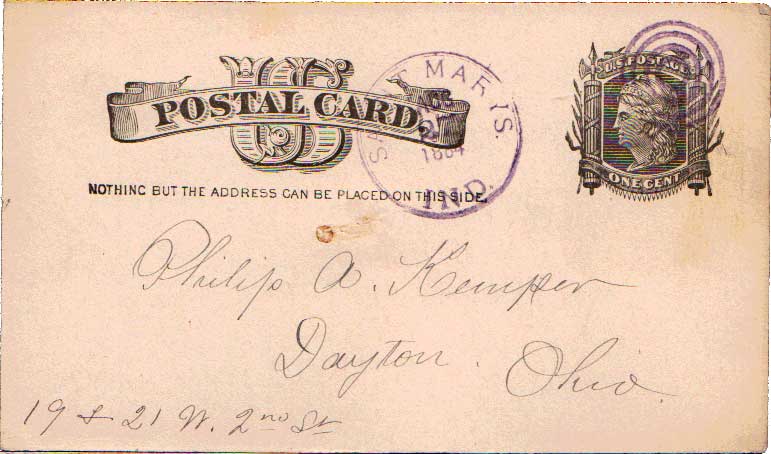 US
POSTAL CARD.
NOTHING BUT THE ADDRESS CAN BE PLACED ON THIS SIDE.
SAINT MARYS.
27
1884
IND.
U.S. POSTAGE
ONE CENT
Philip A. Kemper
Dayton. Ohio.
19 & 21 W. 2nd St